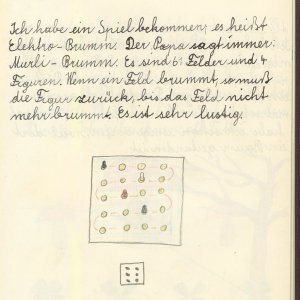 Ich habe ein Spiel bekommen, es heißt
Elektro-Brumm. Der Papa sagt immer:
Murli-Brumm. Es sind 61 Felder und 4
Figuren. Wenn ein Feld brummt, so muß
die Figur zurück, bis das Feld nicht
mehr brummt. Es ist sehr lustig.